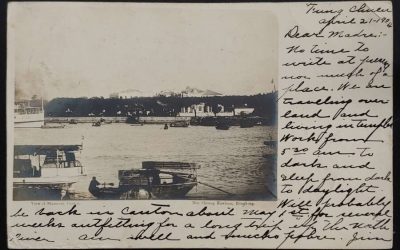 Tung Chuen
April 21-1904
Dear Madre:-
No time to
write at present
nor much of a
place. We are
traveling over
land and
living in temples
Work from
5 30 am to
dark and
sleep from dark
to daylight
Will probably
be back in Canton about May 1st for several
weeks outfitting for a long trip up the North
River. Am well and much
View of
Harbour, Hongkong